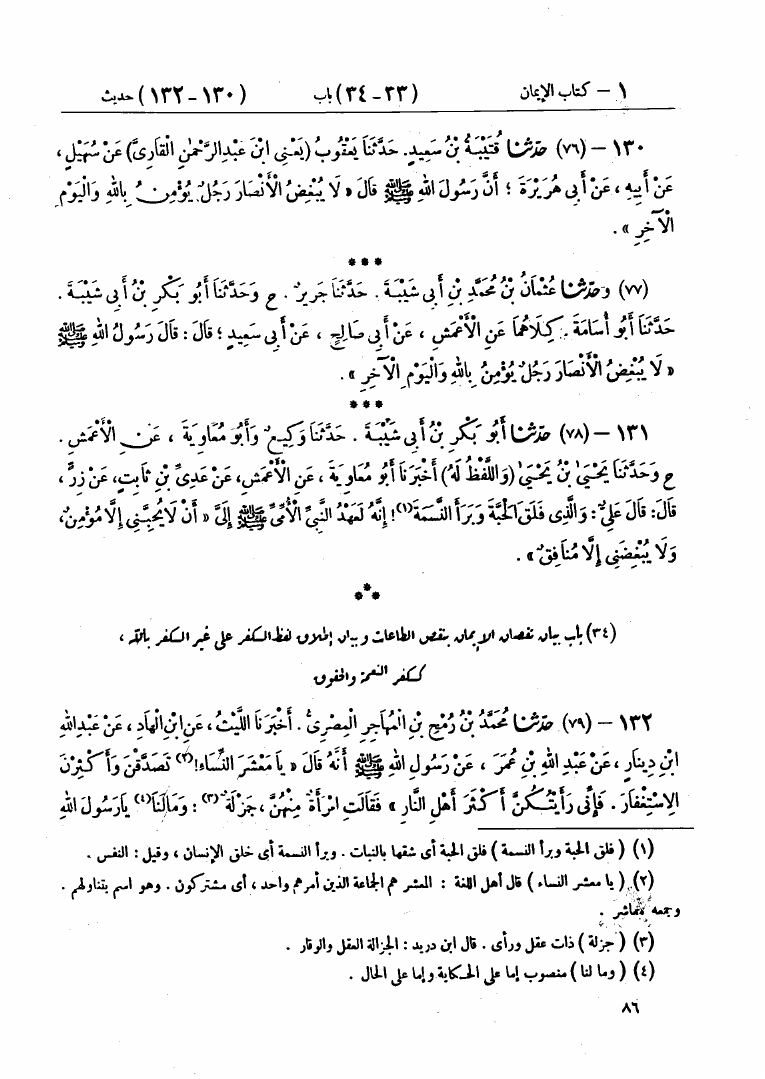 ١ – كتاب الإيمان (٣٣-٣٤) باب (١٣٠-١٣٢) حديث
١٣٠ – (٧٦) حَدَّثَنَا قُتَيْبَةُ بْنُ سَعِيدٍ. حَدَّثَنَا يَعْقُوبُ (يَعْنِي ابْنَ عَبْدِ الرَّحْمٰنِ الْقَارِيَّ) عَنْ سُهَيْلٍ،
عَنْ أَبِيهِ، عَنْ أَبِي هُرَيْرَةَ؛ أَنَّ رَسُولَ اللهِ ﷺ قَالَ « لَا يُبْغِضُ الْأَنْصَارَ رَجُلٌ يُؤْمِنُ بِاللهِ وَالْيَوْمِ
الْآخِرِ ».
***
(٧٧) وحَدَّثَنَا عُثْمَانُ بْنُ مُحَمَّدِ بْنِ أَبِي شَيْبَةَ. حَدَّثَنَا جَرِيرٌ. ح وَحَدَّثَنَا أَبُو بَكْرِ بْنُ أَبِي شَيْبَةَ.
حَدَّثَنَا أَبُو أُسَامَةَ. كِلَاهُمَا عَنِ الْأَعْمَشِ، عَنْ أَبِي صَالِحٍ، عَنْ أَبِي سَعِيدٍ؛ قَالَ: قَالَ رَسُولُ اللهِ ﷺ
« لَا يُبْغِضُ الْأَنْصَارَ رَجُلٌ يُؤْمِنُ بِاللهِ وَالْيَوْمِ الْآخِرِ ».
***
١٣١ – (٧٨) حَدَّثَنَا أَبُو بَكْرِ بْنُ أَبِي شَيْبَةَ. حَدَّثَنَا وَكِيعٌ وَأَبُو مُعَاوِيَةَ، عَنِ الْأَعْمَشِ.
ح وَحَدَّثَنَا يَحْيَىٰ بْنُ يَحْيَىٰ (وَاللَّفْظُ لَهُ) أَخْبَرَنَا أَبُو مُعَاوِيَةَ، عَنِ الْأَعْمَشِ، عَنْ عَدِيِّ بْنِ ثَابِتٍ، عَنْ زِرٍّ،
قَالَ: قَالَ عَلِيٌّ: وَالَّذِي فَلَقَ الْحَبَّةَ وَبَرَأَ النَّسَمَةَ(١)! إِنَّهُ لَعَهْدُ النَّبِيِّ الْأُمِّيِّ ﷺ إِلَيَّ « أَنْ لَا يُحِبَّنِي إِلَّا مُؤْمِنٌ،
وَلَا يُبْغِضَنِي إِلَّا مُنَافِقٌ ».
***
(٣٤) باب بيان نقصان الإيمان بنقص الطاعات وبيان إطلاق لفظ الكفر على غير الكفر بالله،
ككفر النعمة والحقوق
١٣٢ – (٧٩) حَدَّثَنَا مُحَمَّدُ بْنُ رُمْحِ بْنِ الْمُهَاجِرِ الْمِصْرِيُّ. أَخْبَرَنَا اللَّيْثُ، عَنِ ابْنِ الْهَادِ، عَنْ عَبْدِ اللهِ
ابْنِ دِينَارٍ، عَنْ عَبْدِ اللهِ بْنِ عُمَرَ، عَنْ رَسُولِ اللهِ ﷺ أَنَّهُ قَالَ « يَا مَعْشَرَ النِّسَاءِ!(٢) تَصَدَّقْنَ وَأَكْثِرْنَ
الِاسْتِغْفَارَ. فَإِنِّي رَأَيْتُكُنَّ أَكْثَرَ أَهْلِ النَّارِ » فَقَالَتِ امْرَأَةٌ مِنْهُنَّ، جَزْلَةٌ(٣): وَمَا لَنَا(٤) يَا رَسُولَ اللهِ
(١) (فلق الحبة وبرأ النسمة) فلق الحبة أى شقها بالنبات. وبرأ النسمة أى خلق الإنسان، وقيل: النفس.
(٢) (يا معشر النساء) قال أهل اللغة: المعشر هم الجماعة الذين أمرهم واحد، أى مشتركون. وهو اسم يتناولهم.
وجمعه معاشر.
(٣) (جزلة) ذات عقل ورأى. قال ابن دريد: الجزالة العقل والوقار.
(٤) (وما لنا) منصوب إما على الحكاية وإما على الحال.
٨٦